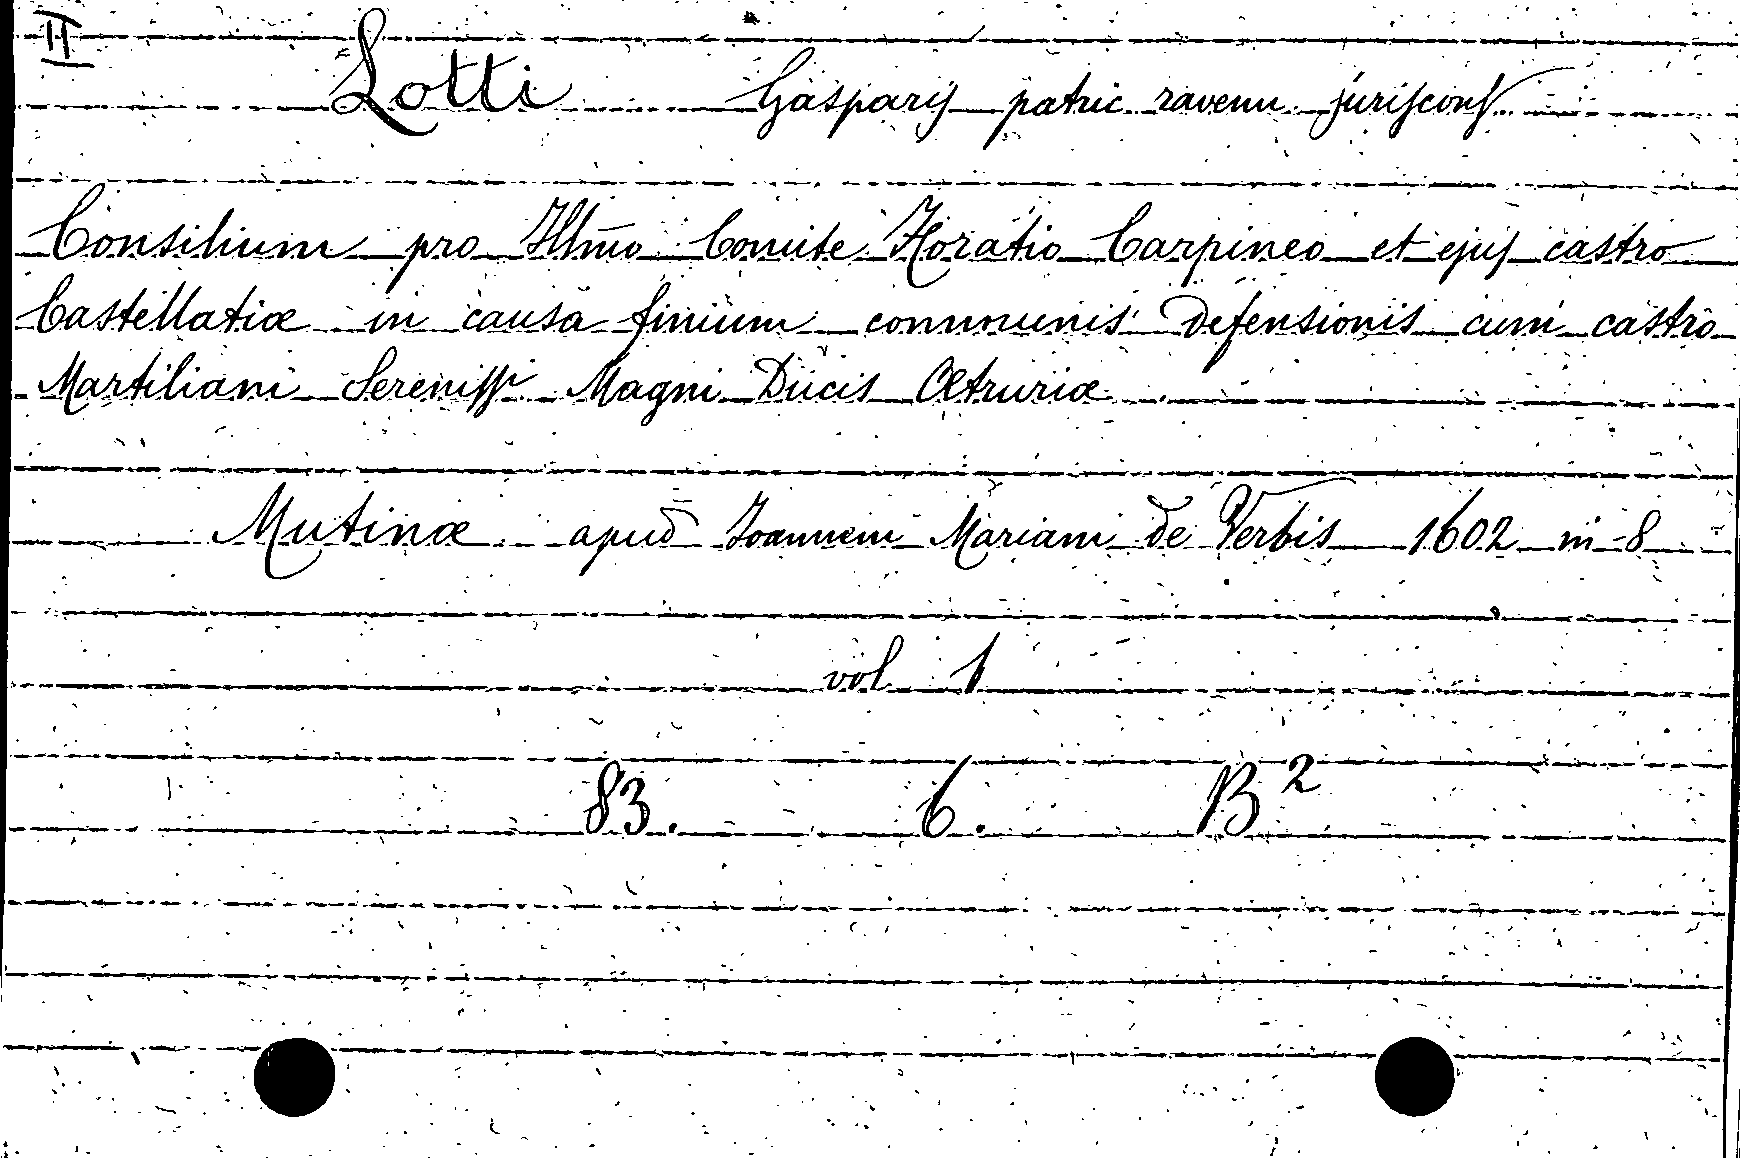 II
Lotti Gasparis patric ravenn juriscons
Consilium pro Illm̃o Comite Horatio Carpineo et ejus castro
Castellatiæ in causa finium communis defensionis cum castro
Martiliani Sereniss Magni Ducis Œtruriæ
Mutinæ apud Joannem Mariam de Verbis 1602 in-8
vol 1
83. 6. B²